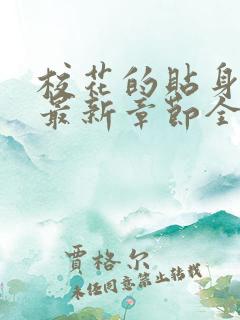 校花的贴身
最新章節全
賈格尔
未经同意禁止转载